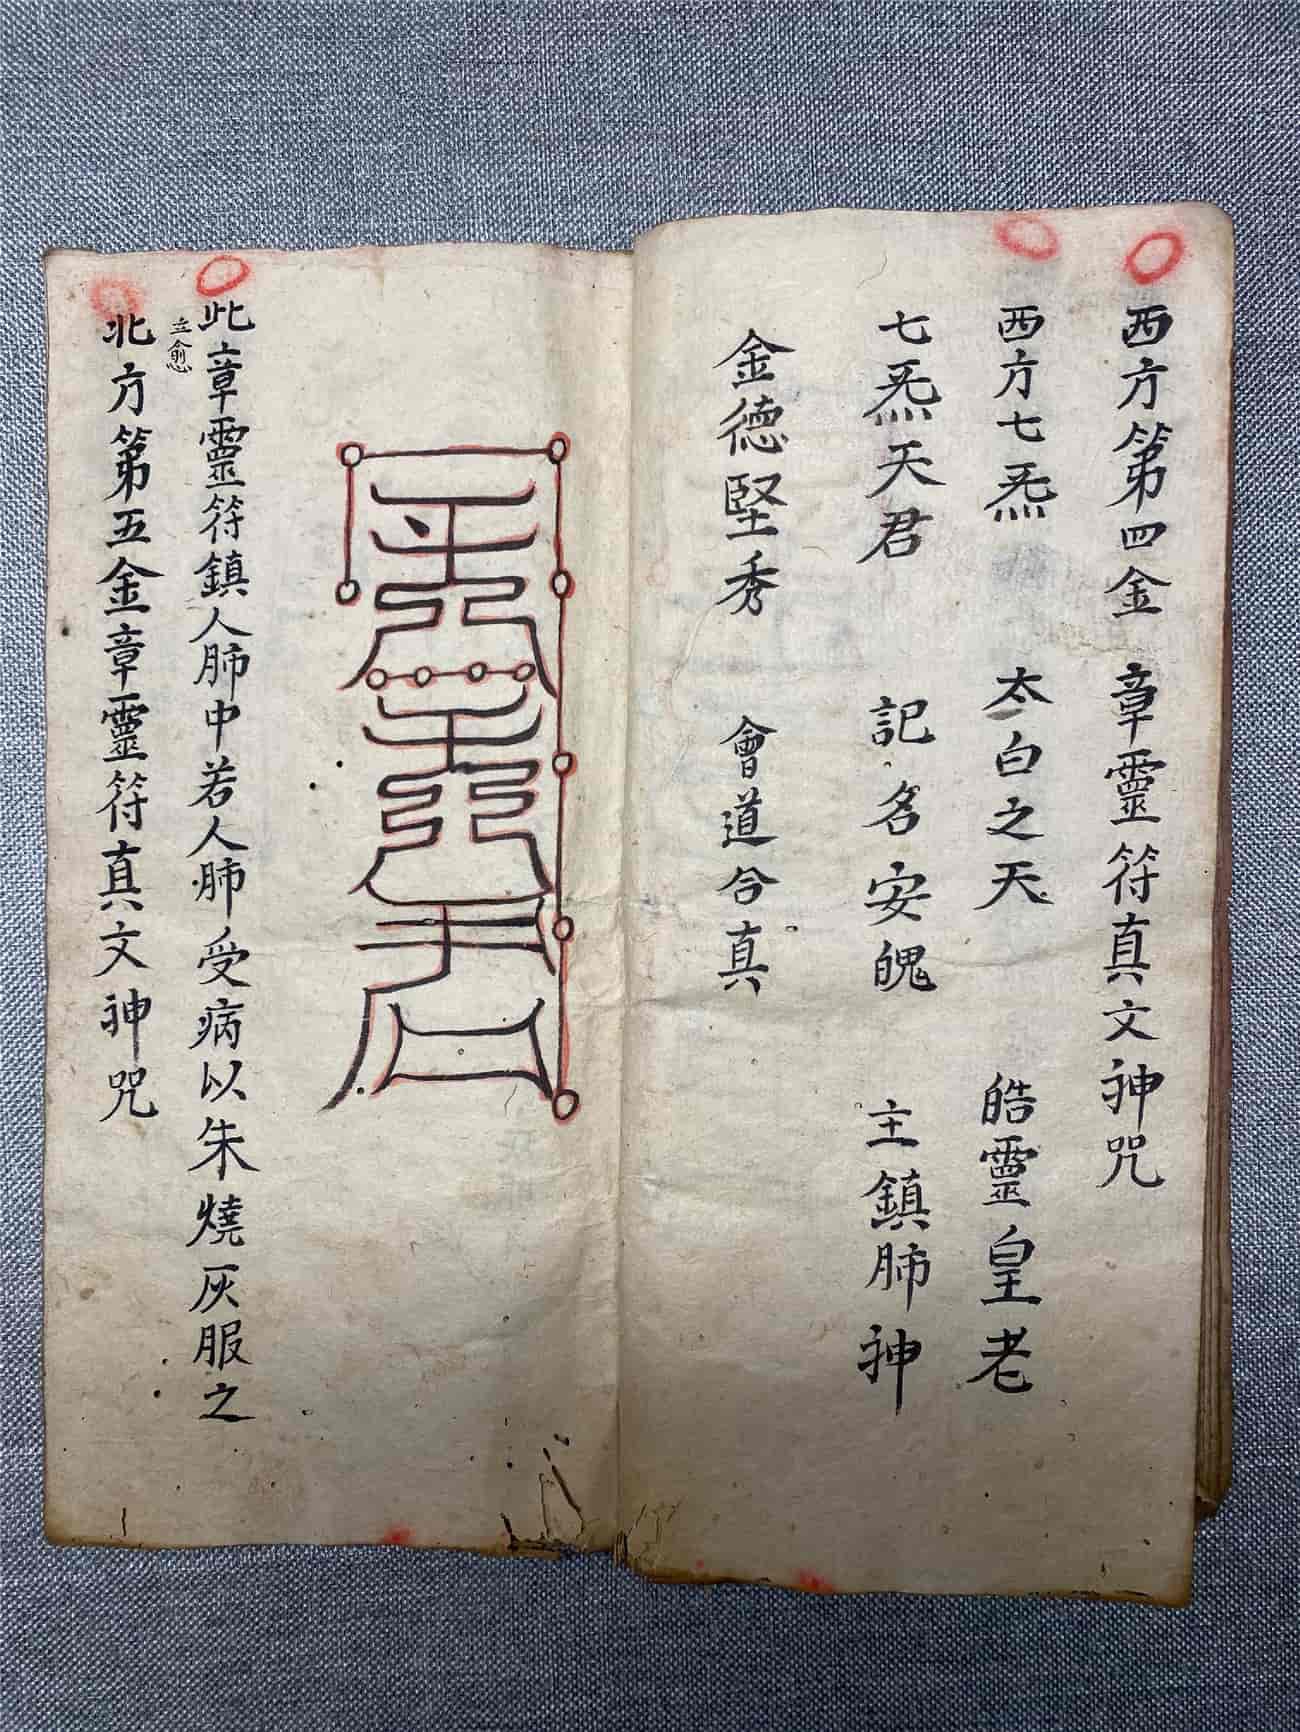 西方第四金章靈符真文神咒
西方七炁 太白之天 皓靈皇老
七炁天君 記名安魄 主鎮肺神
金德堅秀 會道合真
此章靈符鎮人肺中若人肺受病以朱燒灰服之
立愈
北方第五金章靈符真文神咒